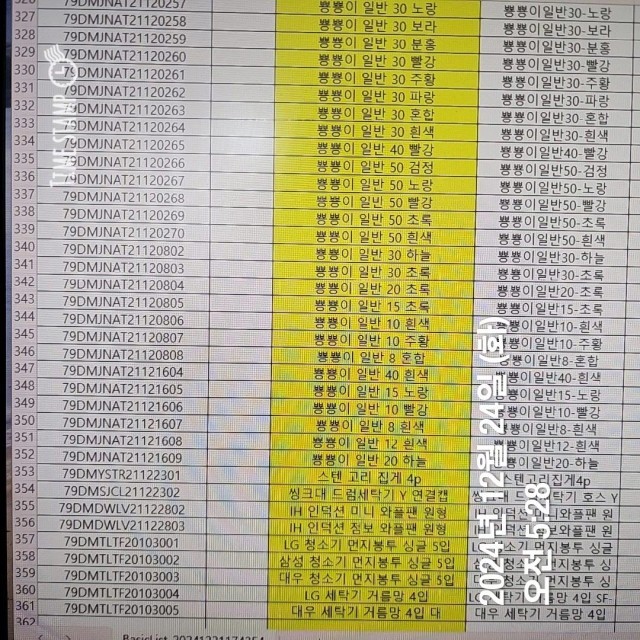 326 79DMJNAT21120257 뿅뿅이 일반 30 노랑 뿅뿅이일반30-노랑
327 79DMJNAT21120258 뿅뿅이 일반 30 보라 뿅뿅이일반30-보라
328 79DMJNAT21120259 뿅뿅이 일반 30 분홍 뿅뿅이일반30-분홍
329 79DMJNAT21120260 뿅뿅이 일반 30 빨강 뿅뿅이일반30-빨강
330 79DMJNAT21120261 뿅뿅이 일반 30 주황 뿅뿅이일반30-주황
331 79DMJNAT21120262 뿅뿅이 일반 30 파랑 뿅뿅이일반30-파랑
332 79DMJNAT21120263 뿅뿅이 일반 30 혼합 뿅뿅이일반30-혼합
333 79DMJNAT21120264 뿅뿅이 일반 30 흰색 뿅뿅이일반30-흰색
334 79DMJNAT21120265 뿅뿅이 일반 40 빨강 뿅뿅이일반40-빨강
335 79DMJNAT21120266 뿅뿅이 일반 50 검정 뿅뿅이일반50-검정
336 79DMJNAT21120267 뿅뿅이 일반 50 노랑 뿅뿅이일반50-노랑
337 79DMJNAT21120268 뿅뿅이 일반 50 빨강 뿅뿅이일반50-빨강
338 79DMJNAT21120269 뿅뿅이 일반 50 초록 뿅뿅이일반50-초록
339 79DMJNAT21120270 뿅뿅이 일반 50 흰색 뿅뿅이일반50-흰색
340 79DMJNAT21120802 뿅뿅이 일반 30 하늘 뿅뿅이일반30-하늘
341 79DMJNAT21120803 뿅뿅이 일반 30 초록 뿅뿅이일반30-초록
342 79DMJNAT21120804 뿅뿅이 일반 20 초록 뿅뿅이일반20-초록
343 79DMJNAT21120805 뿅뿅이 일반 15 초록 뿅뿅이일반15-초록
344 79DMJNAT21120806 뿅뿅이 일반 10 흰색 뿅뿅이일반10-흰색
345 79DMJNAT21120807 뿅뿅이 일반 10 주황 뿅뿅이일반10-주황
346 79DMJNAT21120808 뿅뿅이 일반 8 혼합 뿅뿅이일반8-혼합
347 79DMJNAT21121604 뿅뿅이 일반 40 흰색 뿅뿅이일반40-흰색
348 79DMJNAT21121605 뿅뿅이 일반 15 노랑 뿅뿅이일반15-노랑
349 79DMJNAT21121606 뿅뿅이 일반 10 빨강 뿅뿅이일반10-빨강
350 79DMJNAT21121607 뿅뿅이 일반 8 흰색 뿅뿅이일반8-흰색
351 79DMJNAT21121608 뿅뿅이 일반 12 흰색 뿅뿅이일반12-흰색
352 79DMJNAT21121609 뿅뿅이 일반 20 하늘 뿅뿅이일반20-하늘
353 79DMYSTR21122301 스텐 고리 집게 4p 스텐고리집게4p
354 79DMSJCL21122302 씽크대 드럼세탁기 Y 연결캡 호스 Y
355 79DMDWLV21122802 IH 인덕션 미니 와플팬 원형 IH 인덕션 와플팬 원
356 79DMDWLV21122803 IH 인덕션 점보 와플팬 원형 와플팬 원
357 79DMTLTF20103001 LG 청소기 먼지봉투 싱글 5입 먼지봉투 싱글
358 79DMTLTF20103002 삼성 청소기 먼지봉투 싱글 5입 먼지봉투 싱
359 79DMTLTF20103003 대우 청소기 먼지봉투 싱글 5입 청소기 먼지봉투 싱
360 79DMTLTF20103004 LG 세탁기 거름망 4입 거름망 4입 SF-
361 79DMTLTF20103005 대우 세탁기 거름망 4입 대 대우 세탁기 거름망 4입
362
BasicList_20241221174254
2024년 12월 24일 (화)
오전 5:28